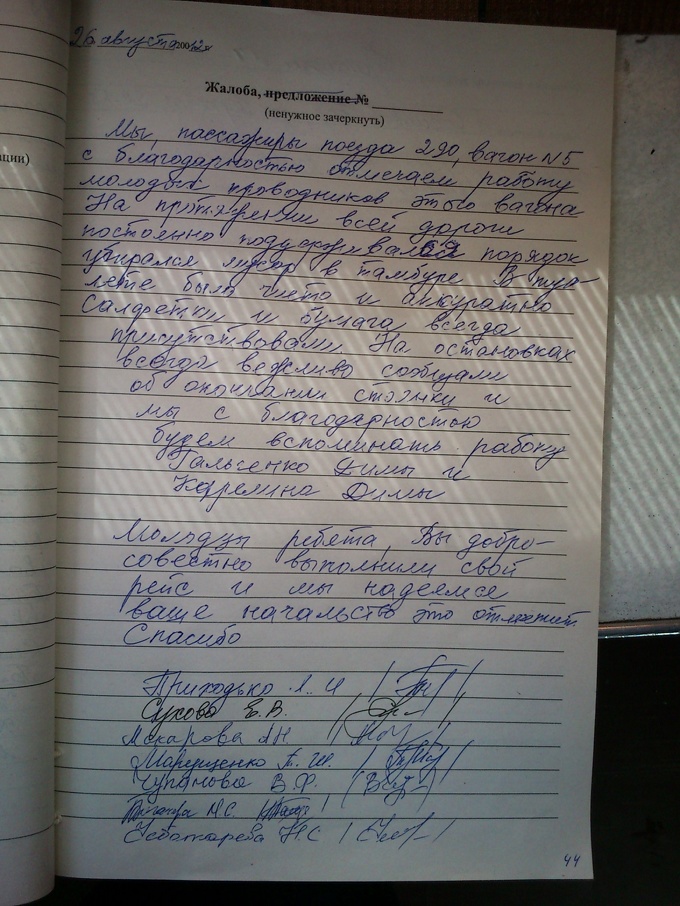 26 августа 2002г
Жалоба, предложение №
(ненужное зачеркнуть)
ации)
Мы, пассажиры поезда 290, вагон N5
с благодарностью отмечаем работу
молодых проводников этого вагона
На протяжении всей дороги
постоянно поддерживался порядок
убирался мусор в тамбуре. В туа-
лете было чисто и аккуратно
Салфетки и бумага всегда
присутствовали. На остановках
всегда вежливо сообщали
об окончании стоянки и
мы с благодарностью
будем вспоминать работу
Гальченко Димы и
Карелина Димы
Молодцы ребята, Вы добро-
совестно выполнили свой
рейс и мы надеемся
ваше начальство это отметит.
Спасибо
Приходько Л. И
Сухова Е.В.
Макарова АН
Марущенко
Чупанова В.Ф.
М.С.
Н.С
44